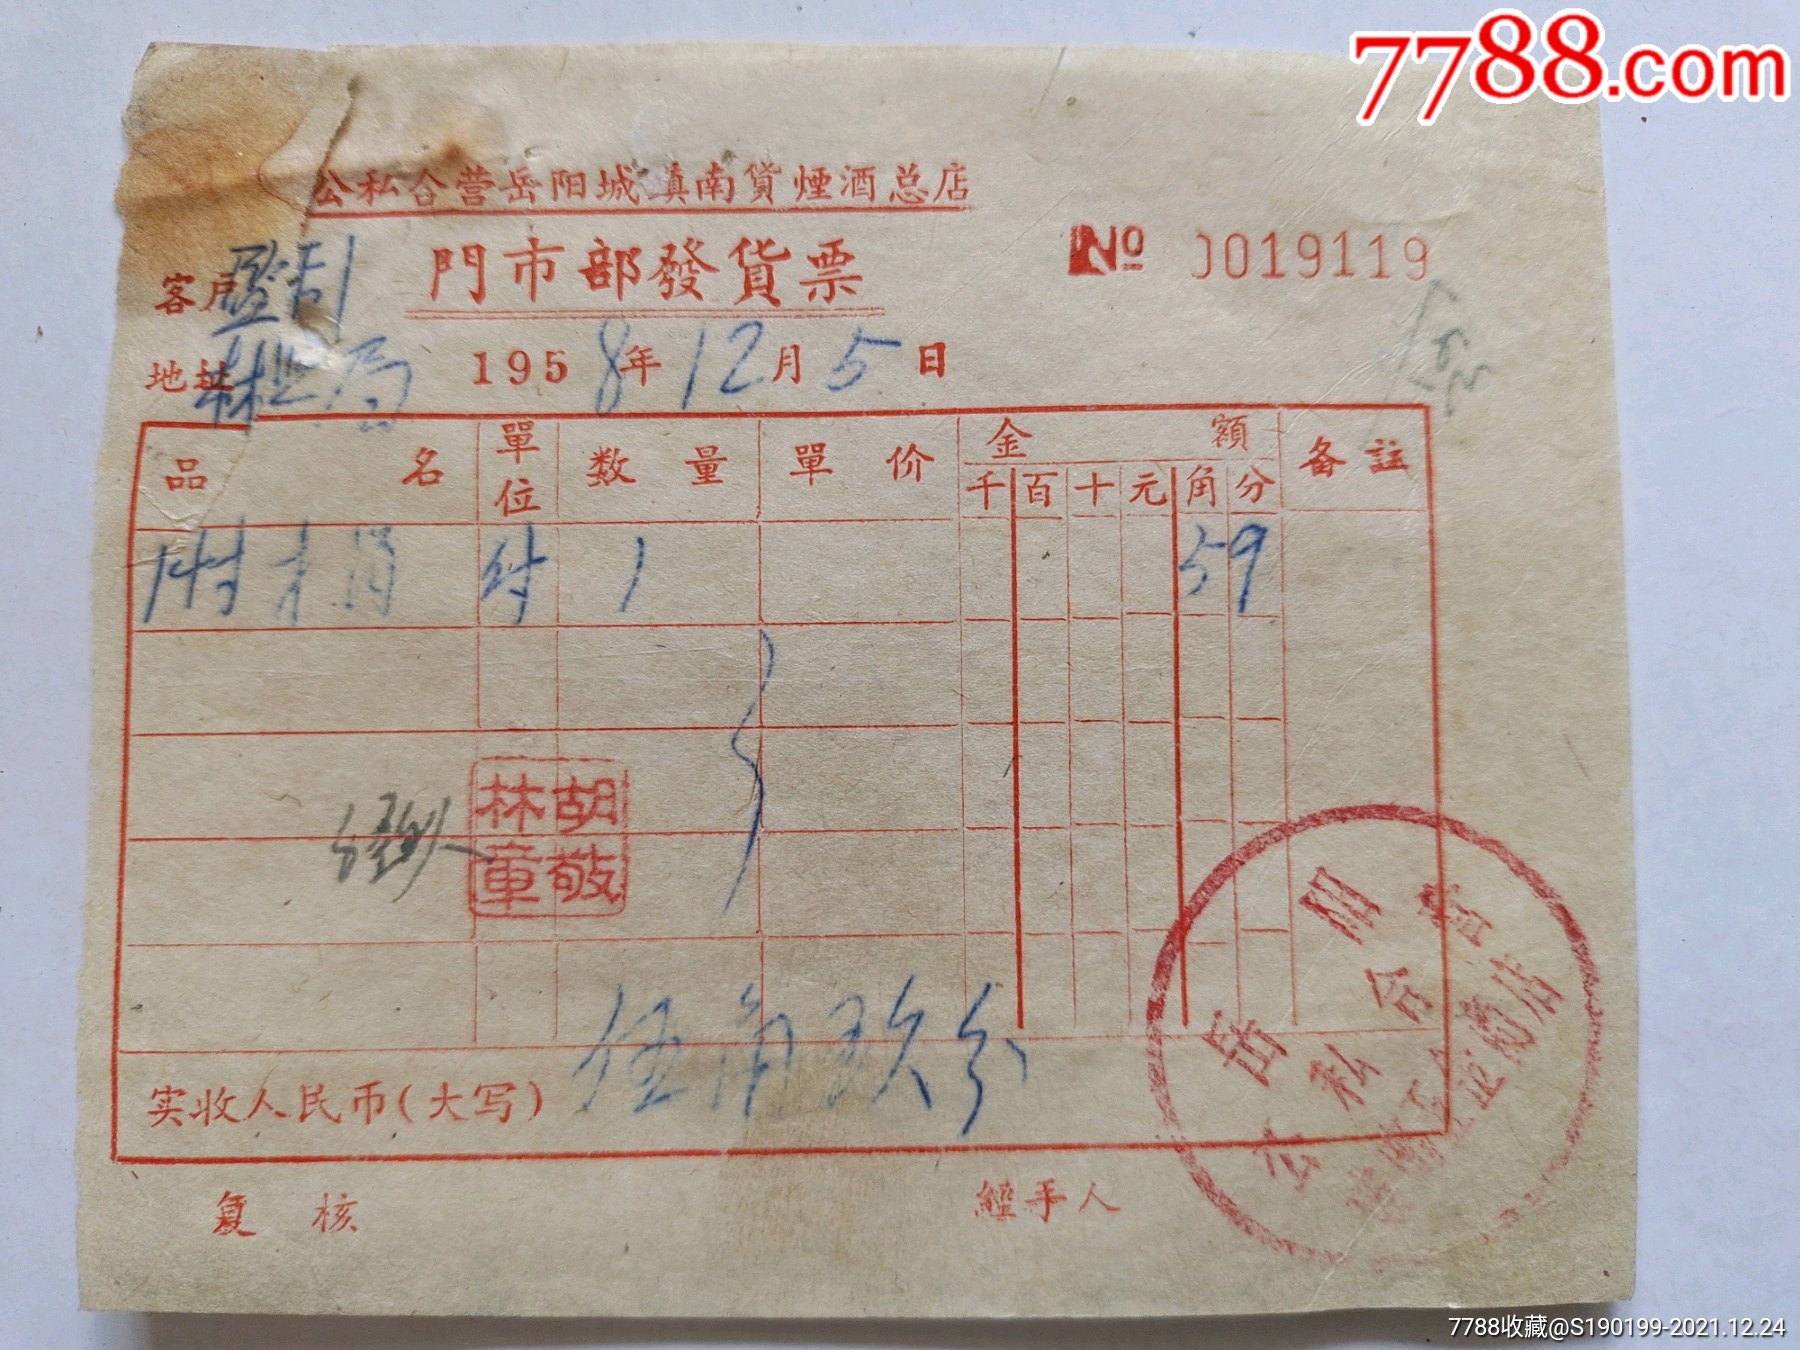 7788.com
公私合营岳阳城镇南貨煙酒总店
門市部發貨票
No 0019119
客户
地址 林业局
1958年12月5日
品名 單位 数量 單价 金額 备註
千 百 十 元 角 分
付 1 59
胡敬林章
伍角玖分
实收人民币(大写)
复核 經手人
岳阳
公私合营
7788收藏@S190199-2021.12.24